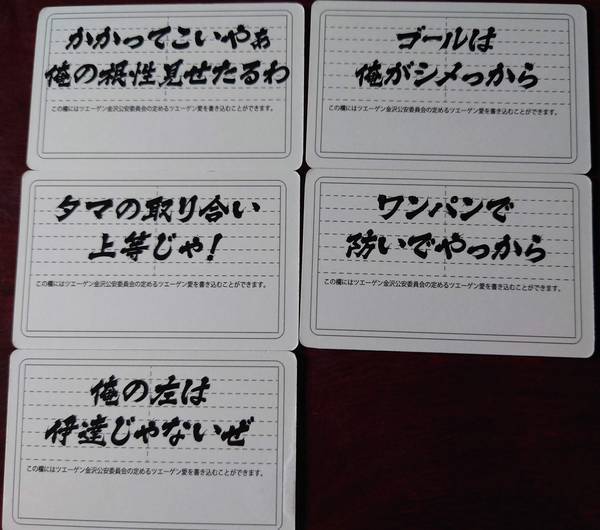 かかってこいやぁ
俺の根性見せたるわ
この欄にはツエーゲン金沢公安委員会の定めるツエーゲン愛を書き込むことができます。
ゴールは
俺がシメっから
この欄にはツエーゲン金沢公安委員会の定めるツエーゲン愛を書き込むことができます。
タマの取り合い
上等じゃ!
この欄にはツエーゲン金沢公安委員会の定めるツエーゲン愛を書き込むことができます。
ワンパンで
防いでやっから
この欄にはツエーゲン金沢公安委員会の定めるツエーゲン愛を書き込むことができます。
俺の左は
伊達じゃないぜ
この欄にはツエーゲン金沢公安委員会の定めるツエーゲン愛を書き込むことができます。